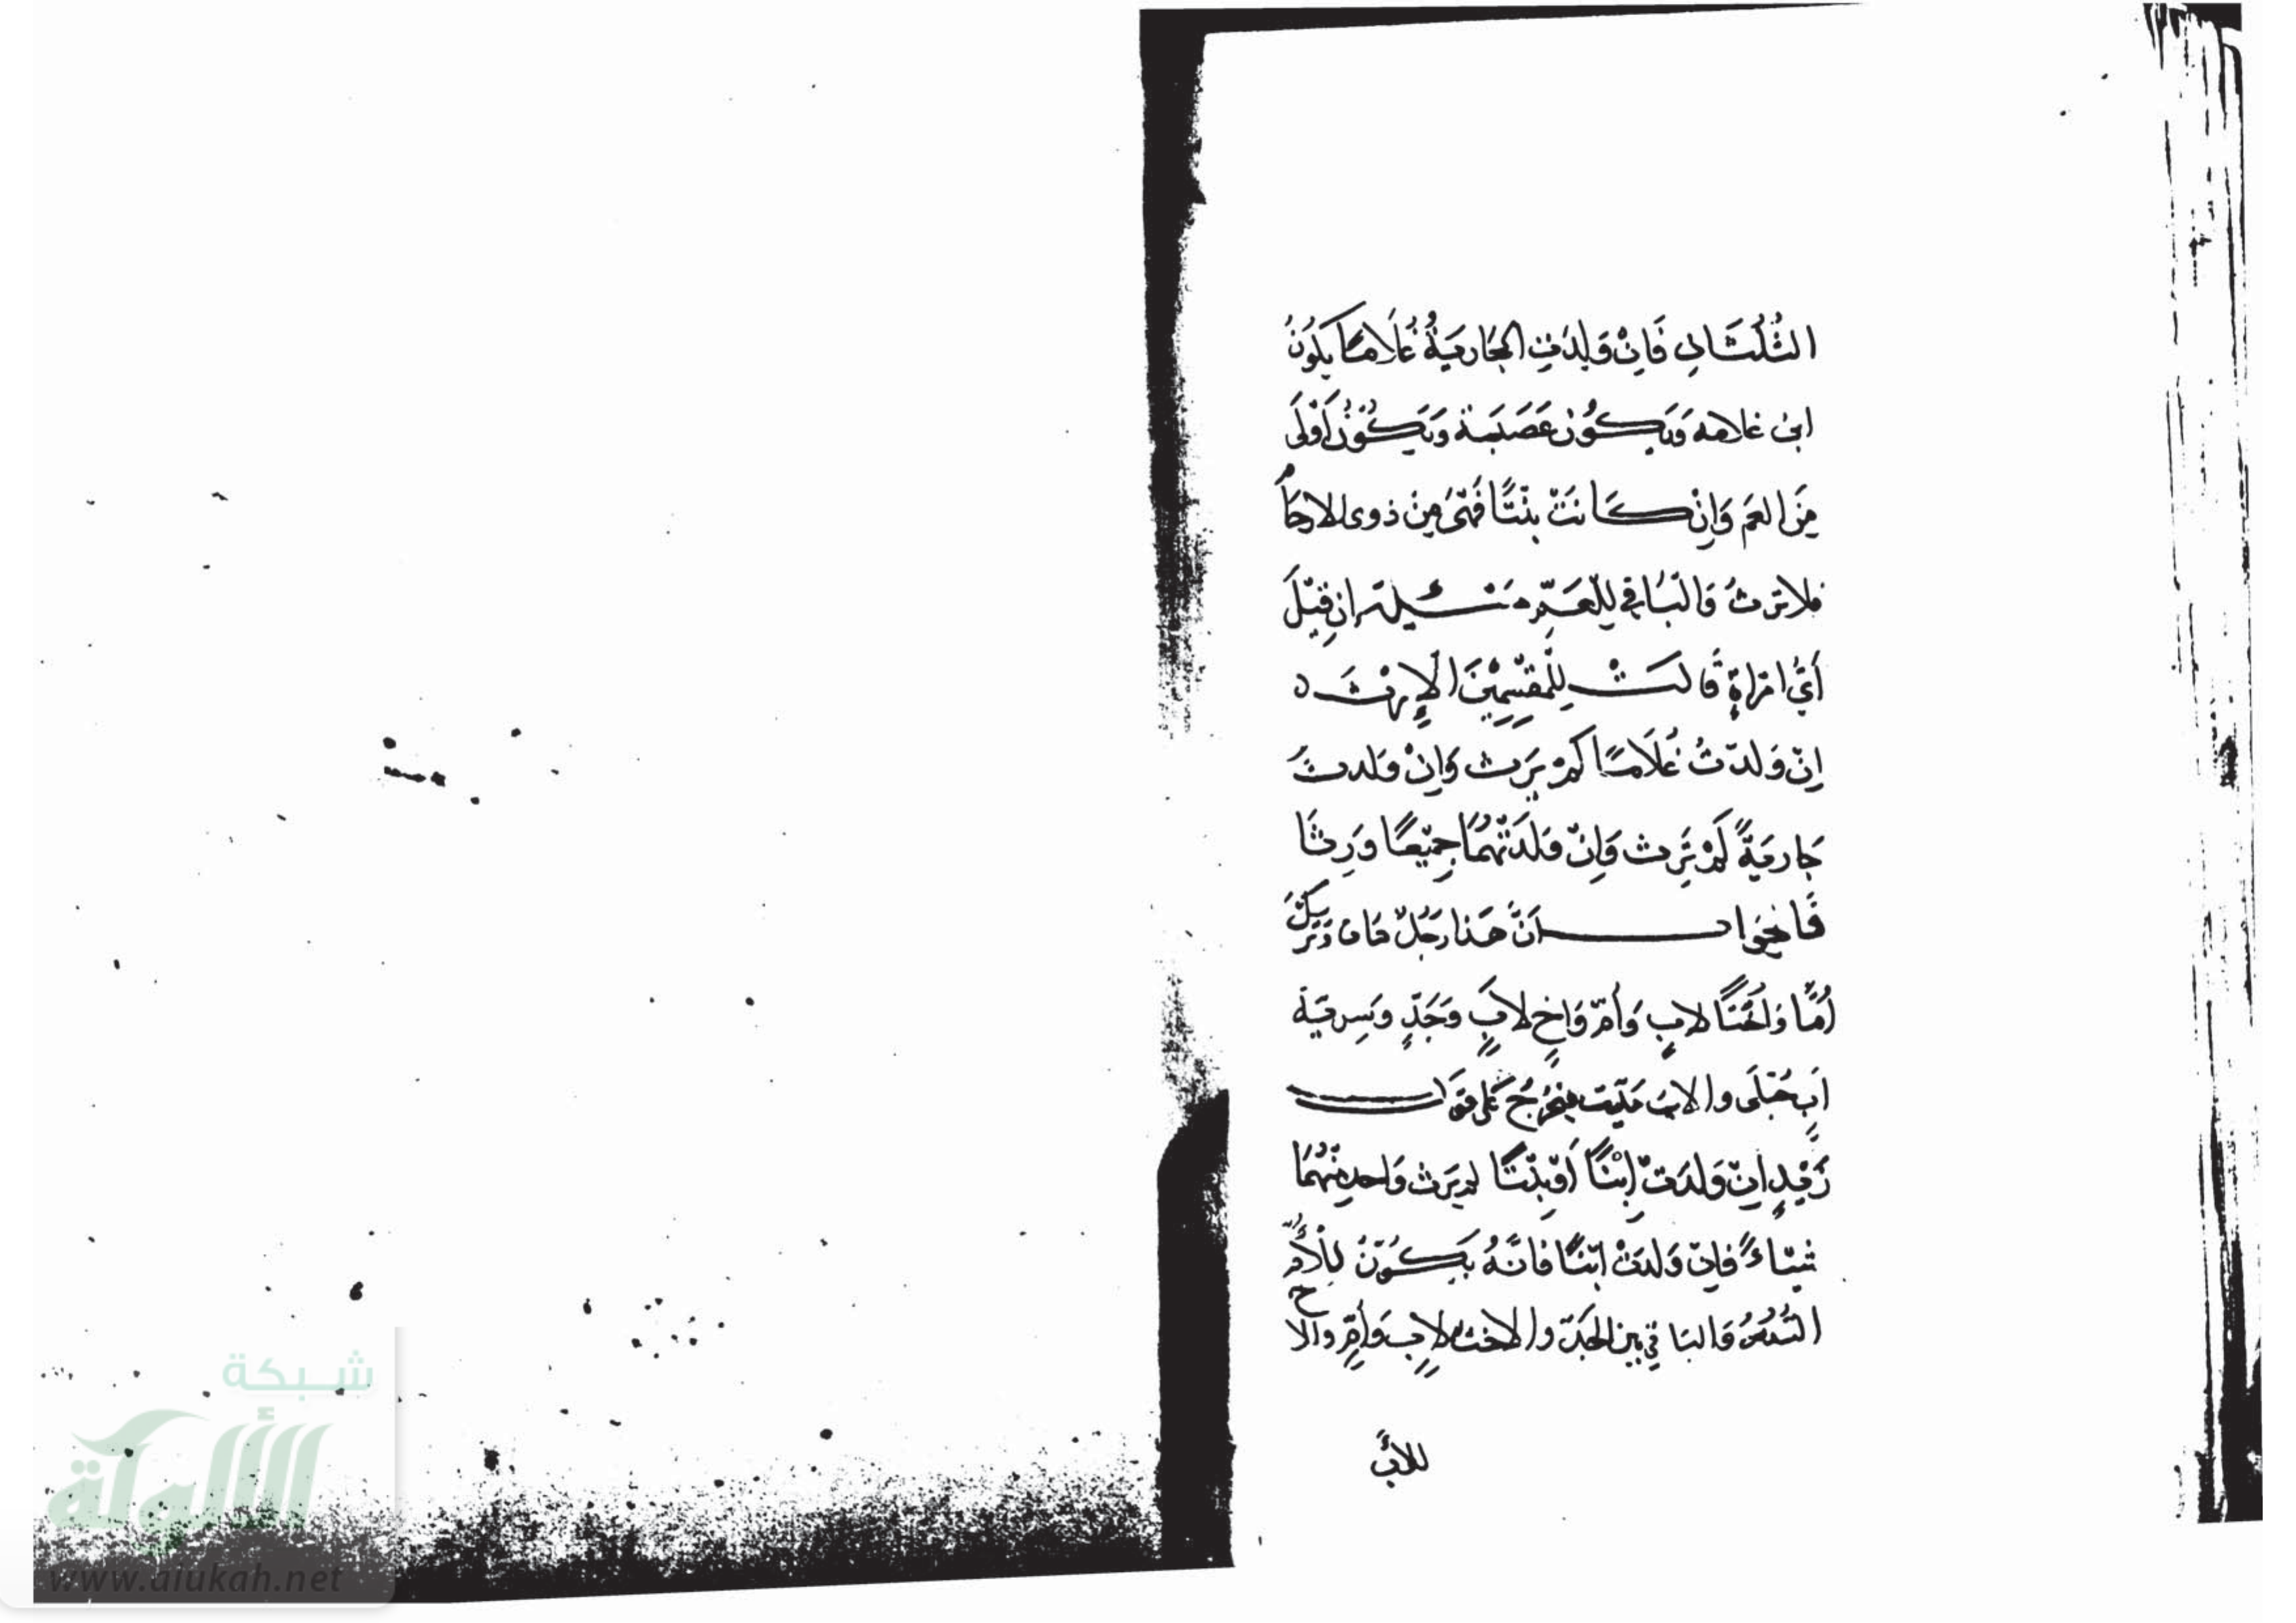 الثُلُثَانِ فَاِنْ وَلِدَتِ الجَاريَةُ غُلَامًا يَكُونُ
ابن غلامه وَيَكُوْنُ عَصَبَة وَيَكُوْنُ اَوْلَى
مِنَ العَم وَاِنْ كَانَتْ بِنْتًا فَهْىَ مِنْ ذوى الارحَامُ
فلا ترثُ وَالبَاقِي لِلْعَمِّ مَسْئِلة اِنْ قِيْلَ
اَيُّ امْرَاةٍ قَالَتْ لِلْمُقْسِمِيْنَ الْإِرْثَ
اِنْ وَلدَتُ غُلَامًا لَمْ يَرِث وَاِنْ وَلدتُ
جَاريَةً لَمْ تَرِث وَاِنْ وَلَدَتْهُمَا جَمِيْعًا وَرِثَا
فَالجَوابُ اَنَّ هَذا رَجُلٌ مَاتَ وَتَرَكَ
اُمًّا وَاُخْتًا لابٍ وَاُمّ وَاخٍ لابٍ وَجَدٍّ وَسِريَة
اَبٍ حُبْلَى والابُ مَيّت فيَخْرُج عَلى قَوَاب
زَيْدٍ اِنْ وَلَدَتْ اِبْنًا اَوْ بِنْتًا لم يَرث وَاحد مِنْهُمَا
شَيْاءً فاِنْ وَلَدَتْ ابْنًا فَانَّهُ يَكُوْنُ لِلْاُمِّ
السُدُسُ وَالبَاقِي بين الجَدّ والاختُ لابٍ وَاُمٍّ والاخ
للأَب
شبكة
الألوكة
www.alukah.net